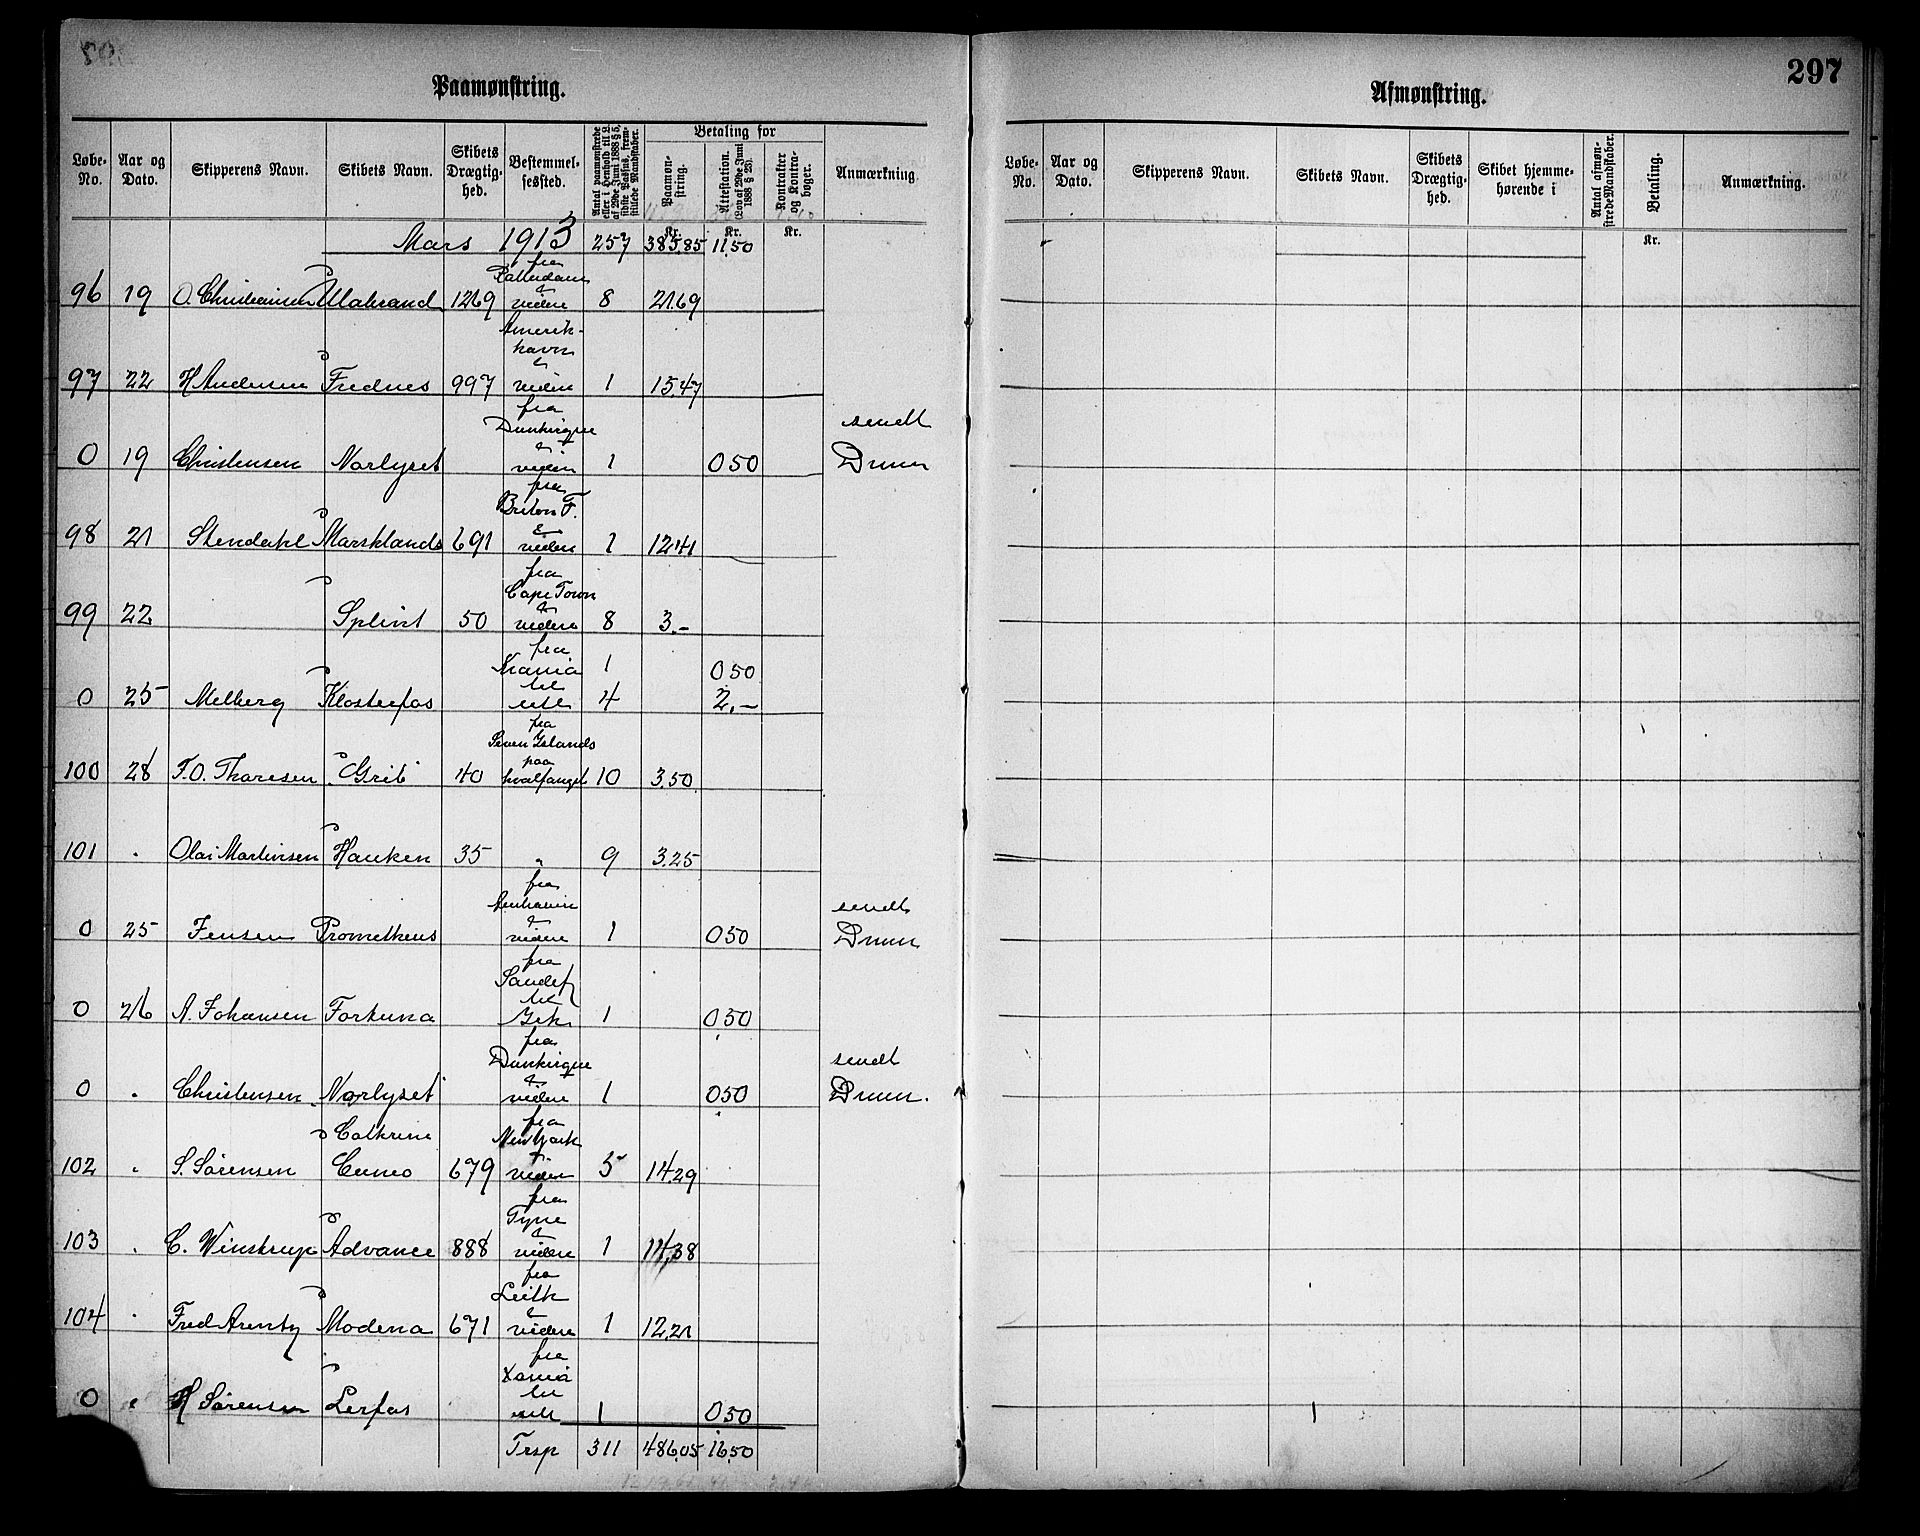 297
Paamønstring.
Løbe-No. | Aar og Dato. | Skipperens Navn. | Skibets Navn. | Skibets Drægtighed. | Bestemmelsessted. | Antal paamønstrede eller i Henhold til L. af 29de Juni 1888 § 5, sidste Passus, fremstillede Mandskaber. | Betaling for | Paamønstring. Kr. | Attestation. (Lov af 29de Juni 1888 § 23). Kr. | Kontrakter og Kontrabøger. Kr. | Anmærkning.
Mars 1913 257 385.85 11.50
96 19 O. Christiansen 1269 fra Rotterdam & videre 8 21.69
97 22 H Andersen Frednes 997 Amerik-havn & videre 1 15.47
0 19 Christensen Norlyset fra Dunkirque & videre 1 0 50 sendt Drmm
98 21 Stendahl Marsklands 691 fra Briton F. & videre 1 12.41
99 22 Splint 50 fra Cape Town & videre 8 3.-
0 25 Melberg Klosterfos fra Krania til utl 1 0 50
4 2,-
100 28 T.O. Thoresen Grib 40 fra Seven Islands paa hvalfanget 10 3.50
101 . Olai Martinsen Hauken 35 „ 9 3.25
0 25 Jensen Prometheus fra & videre 1 0 50 sendt Drmm
0 26 A. Johansen Fortuna fra Sandef til 1 0 50
0 „ Christensen Norlyset fra Dunkirque & videre 1 0 50 sendt Drmm.
102 „ S. Sørensen Cathrine Cuneo 679 fra New York & videre 5 14.29
103 „ C. Winstrup Advance 888 fra Tyne & videre 1 14,38
104 „ Fred Arentz Modena 671 fra Leith & videre 1 12.21
0 „ H Sørensen Lerfos fra Xania til utl 1 0 50
Trsp 311 486.05 16.50
Afmønstring.
Løbe-No. | Aar og Dato. | Skipperens Navn. | Skibets Navn. | Skibets Drægtighed. | Skibet hjemmehørende i | Antal afmønstrede Mandskaber. | Betaling. Kr. | Anmærkning.